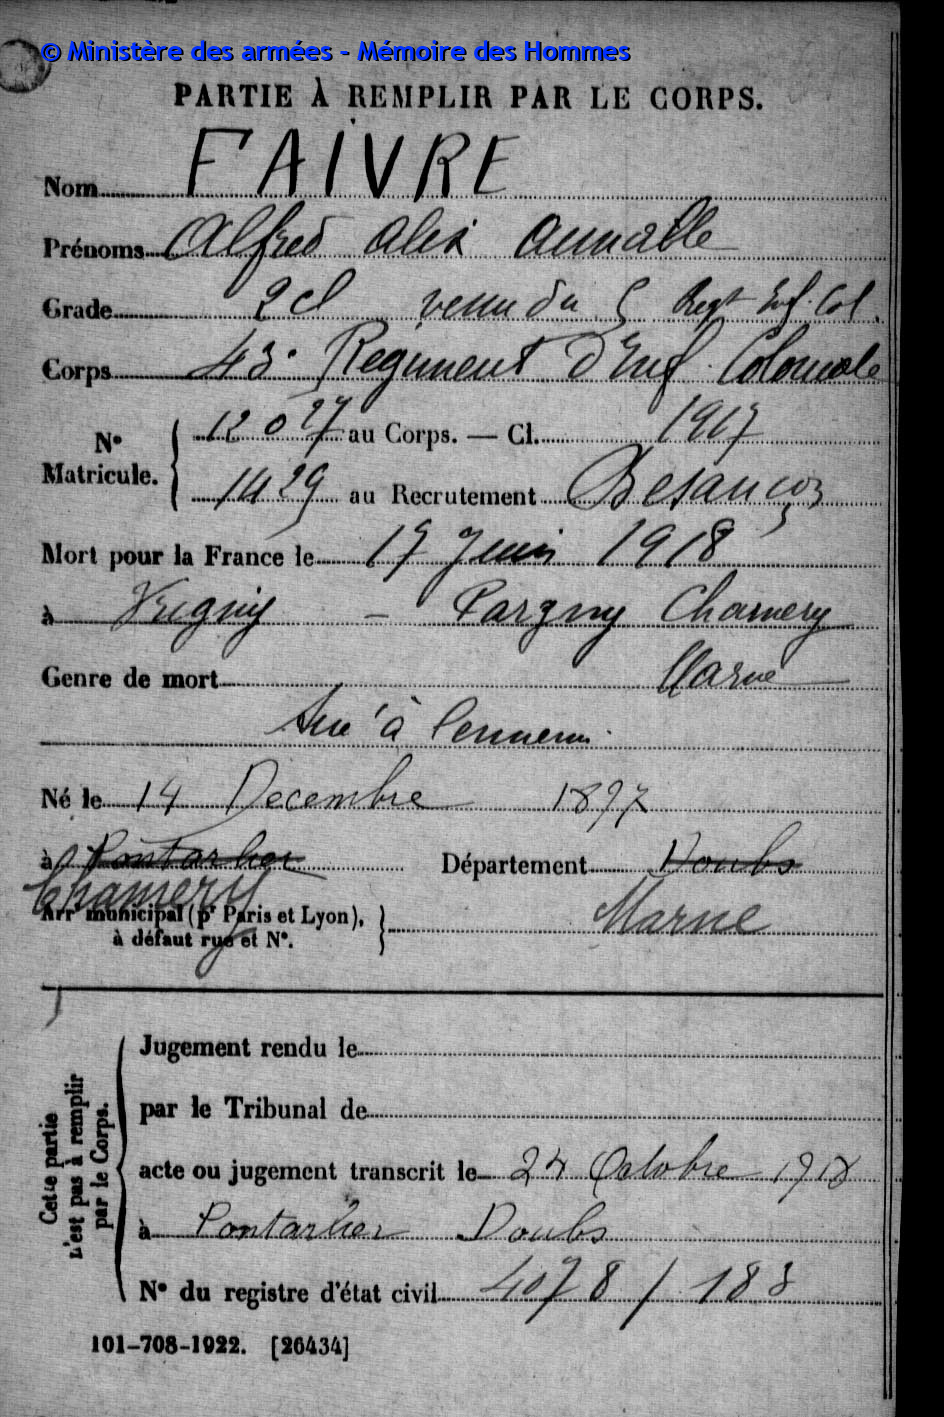 © Ministère des armées - Mémoire des Hommes
PARTIE À REMPLIR PAR LE CORPS.
Nom FAIVRE
Prénoms Alfred Alix
Grade 2 cl venu du 5 Regt Inf. Col.
Corps 43e Régiment d'Inf. Coloniale
No Matricule. { 12027 au Corps. — Cl. 1917
1429 au Recrutement Besançon
Mort pour la France le 17 Juin 1918
à Vrigny - Pargny Chamery
Marne
Genre de mort
Tué à l'ennemi.
Né le 14 Decembre 1897
à Pontarlier Département Doubs
Chamery
Arrt municipal (pr Paris et Lyon), à défaut rue et No. } Marne
Cette partie n'est pas à remplir par le Corps.
Jugement rendu le
par le Tribunal de
acte ou jugement transcrit le 24 Octobre 1918
à Pontarlier Doubs
No du registre d'état civil 4078 / 183
101-708-1922. [26434]